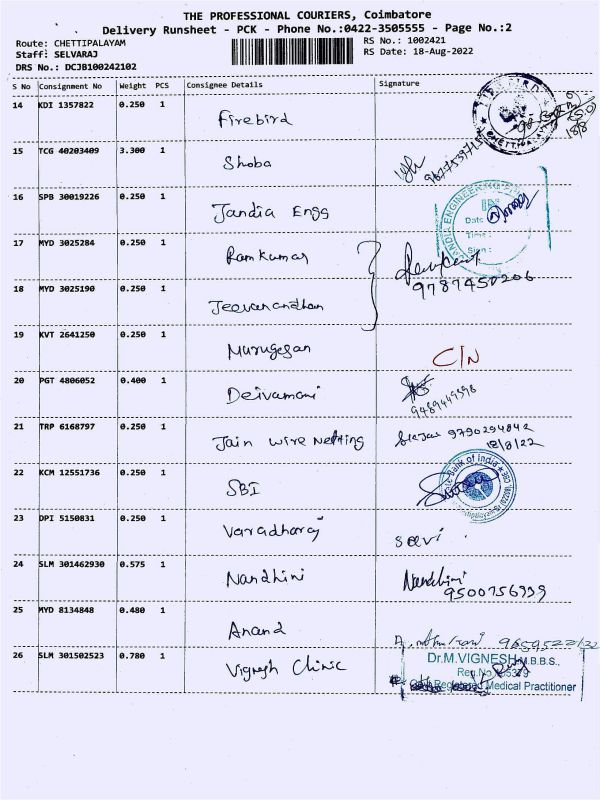 THE PROFESSIONAL COURIERS, Coimbatore
Delivery Runsheet - PCK - Phone No.:0422-3505555 - Page No.:2
Route: CHETTIPALAYAM
RS No.: 1002421
Staff: SELVARAJ
RS Date: 18-Aug-2022
DRS No.: DCJB100242102
S No Consignment No Weight PCS Consignee Details Signature
14 KDI 1357822 0.250 1 Firebird
CHETTIPALAYAM
18/8
15 TCG 40203409 3.300 1 Shoba
16 SPB 30019226 0.250 1 Jandia Engg
INDIA ENGINEERING
Date
Time:
Sign:
17 MYD 3025284 0.250 1 Ramkumar
9787450206
18 MYD 3025190 0.250 1 Jeevanandham
19 KVT 2641250 0.250 1 Murugesan C/N
20 PGT 4806052 0.400 1 Deivamani
9489449598
21 TRP 6168797 0.250 1 Jain wire Netting 9790294842
18/8/22
22 KCM 12551736 0.250 1 SBI
Bank of India
23 DPI 5150831 0.250 1 Varadharaj selvi
24 SLM 301462930 0.575 1 Nandhini Nandhini
9500756939
25 MYD 8134848 0.480 1 Anand
26 SLM 301502523 0.780 1 Vignesh Clinic
Dr.M.VIGNESH M.B.B.S.,
Reg.No
Registered Medical Practitioner